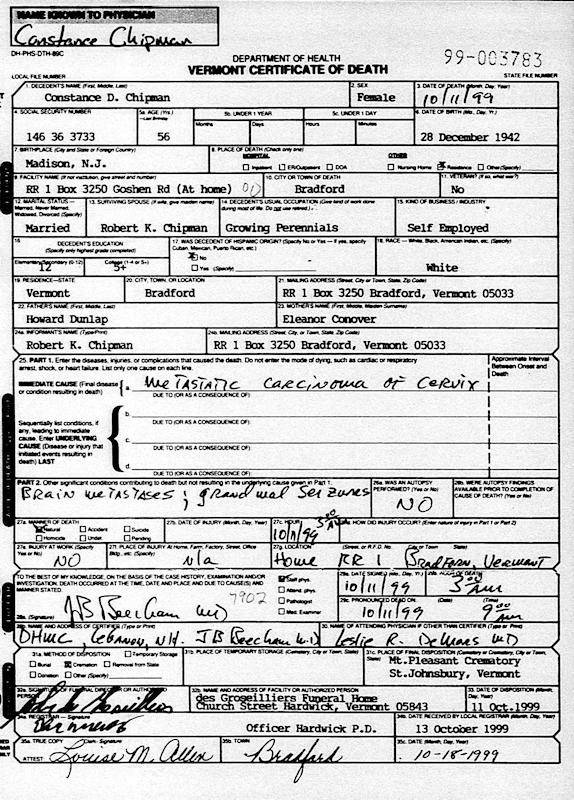 NAME KNOWN TO PHYSICIAN
Constance Chipman
DH-PHS-DTH-89C
DEPARTMENT OF HEALTH
99-003783
VERMONT CERTIFICATE OF DEATH
LOCAL FILE NUMBER
STATE FILE NUMBER
1. DECEDENT'S NAME (First, Middle, Last)
2. SEX
3. DATE OF DEATH (Month, Day, Year)
Constance D. Chipman
Female
10/11/99
4. SOCIAL SECURITY NUMBER
5a. AGE (Yrs.)
5b. UNDER 1 YEAR
5c. UNDER 1 DAY
6. DATE OF BIRTH (Mo., Day, Yr.)
Months
Days
Hours
Minutes
146 36 3733
56
28 December 1942
7. BIRTHPLACE (City and State or Foreign Country)
8. PLACE OF DEATH (Check only one)
HOSPITAL
OTHER
Madison, N.J.
Inpatient
ER/Outpatient
DOA
Nursing Home
Residence
Other (Specify)
9. FACILITY NAME (If not institution, give street and number)
10. CITY OR TOWN OF DEATH
11. VETERAN? (If so, what war?)
RR 1 Box 3250 Goshen Rd (At home)
Bradford
No
12. MARITAL STATUS —
Married, Never Married,
Widowed, Divorced (Specify)
13. SURVIVING SPOUSE (If wife, give maiden name)
14. DECEDENT'S USUAL OCCUPATION (Give kind of work done
during most of life. Do not use retired.)
15. KIND OF BUSINESS / INDUSTRY
Married
Robert K. Chipman
Growing Perennials
Self Employed
16. DECEDENT'S EDUCATION
(Specify only highest grade completed)
17. WAS DECEDENT OF HISPANIC ORIGIN? (Specify No or Yes — If yes, specify
Cuban, Mexican, Puerto Rican, etc.)
18. RACE — White, Black, American Indian, etc. (Specify)
No
Elementary/Secondary (0-12)
College (1-4 or 5+)
Yes (Specify)
12
5+
White
19. RESIDENCE—STATE
20. CITY, TOWN, OR LOCATION
21. MAILING ADDRESS (Street, City or Town, State, Zip Code)
Vermont
Bradford
RR 1 Box 3250 Bradford, Vermont 05033
22. FATHER'S NAME (First, Middle, Last)
23. MOTHER'S NAME (First, Middle, Maiden Surname)
Howard Dunlap
Eleanor Conover
24a. INFORMANT'S NAME (Type/Print)
24b. MAILING ADDRESS (Street, City, or Town, State, Zip Code)
Robert K. Chipman
RR 1 Box 3250 Bradford, Vermont 05033
25. PART 1. Enter the diseases, injuries, or complications that caused the death. Do not enter the mode of dying, such as cardiac or respiratory
arrest, shock, or heart failure. List only one cause on each line.
Approximate Interval
Between Onset and
Death
IMMEDIATE CAUSE (Final disease
or condition resulting in death)
a. METASTATIC CARCINOMA OF CERVIX
DUE TO (OR AS A CONSEQUENCE OF)
b.
Sequentially list conditions, if
any, leading to immediate
cause. Enter UNDERLYING
CAUSE (Disease or injury that
initiated events resulting in
death) LAST
DUE TO (OR AS A CONSEQUENCE OF)
c.
DUE TO (OR AS A CONSEQUENCE OF)
d.
PART 2. Other significant conditions contributing to death but not resulting in the underlying cause given in Part 1.
26a. WAS AN AUTOPSY
PERFORMED? (Yes or No)
26b. WERE AUTOPSY FINDINGS
AVAILABLE PRIOR TO COMPLETION OF
CAUSE OF DEATH? (Yes or No)
BRAIN METASTASES; grand mal seizures
NO
27a. MANNER OF DEATH
27b. DATE OF INJURY (Month, Day, Year)
27c. HOUR
HOW DID INJURY OCCUR? (Enter nature of injury in Part 1 or Part 2)
Natural
Accident
Suicide
Homicide
Under.
Pending
10/11/99
27e. INJURY AT WORK (Specify
Yes or No)
27f. PLACE OF INJURY At Home, Farm, Factory, Street, Office
Bldg., etc. (Specify)
27g. LOCATION
Street, or R.F.D. No.
City or Town
State
NO
n/a
Home RR 1 BRADFORD, VERMONT
TO THE BEST OF MY KNOWLEDGE, ON THE BASIS OF THE CASE HISTORY, EXAMINATION AND/OR
INVESTIGATION, DEATH OCCURRED AT THE TIME, DATE AND PLACE AND DUE TO CAUSE(S) AND
MANNER STATED
Staff phys.
Attend. phys.
Pathologist
Med. Examiner
29a. DATE SIGNED (Mo., Day, Yr.)
10/11/99
5 00 AM
7902
29c. PRONOUNCED DEAD ON:
Time
10/11/99
9 00 AM
28a. (Signature)
JB Beecham MD
28b. NAME AND ADDRESS OF CERTIFIER (Type or Print)
30. NAME OF ATTENDING PHYSICIAN IF OTHER THAN CERTIFIER (Type or Print)
DHMC, Lebanon, N.H. JB Beecham M.D.
Leslie R. DeMars MD
31a. METHOD OF DISPOSITION
Temporary Storage
31b. PLACE OF TEMPORARY STORAGE (Cemetery, City or Town, State)
31c. PLACE OF FINAL DISPOSITION (Cemetery or Crematory, City or Town, State)
Burial
Cremation
Removal from State
Donation
Other (Specify)
Mt.Pleasant Crematory
St.Johnsbury, Vermont
32a. SIGNATURE OF FUNERAL DIRECTOR OR AUTHORIZED
PERSON
32b. NAME AND ADDRESS OF FACILITY OR AUTHORIZED PERSON
33. DATE OF DISPOSITION
(Month, Day, Year)
des Groseilliers Funeral Home
Church Street Hardwick, Vermont 05843
11 Oct.1999
34a. REGISTRAR — Signature
34b. DATE RECEIVED BY LOCAL REGISTRAR (Month, Day, Year)
Officer Hardwick P.D.
13 October 1999
35a. TRUE COPY
Clerk - Signature
35b. TOWN
35c. DATE (Month, Day, Year)
ATTEST
Louise M. Allen
Bradford
10-18-1999